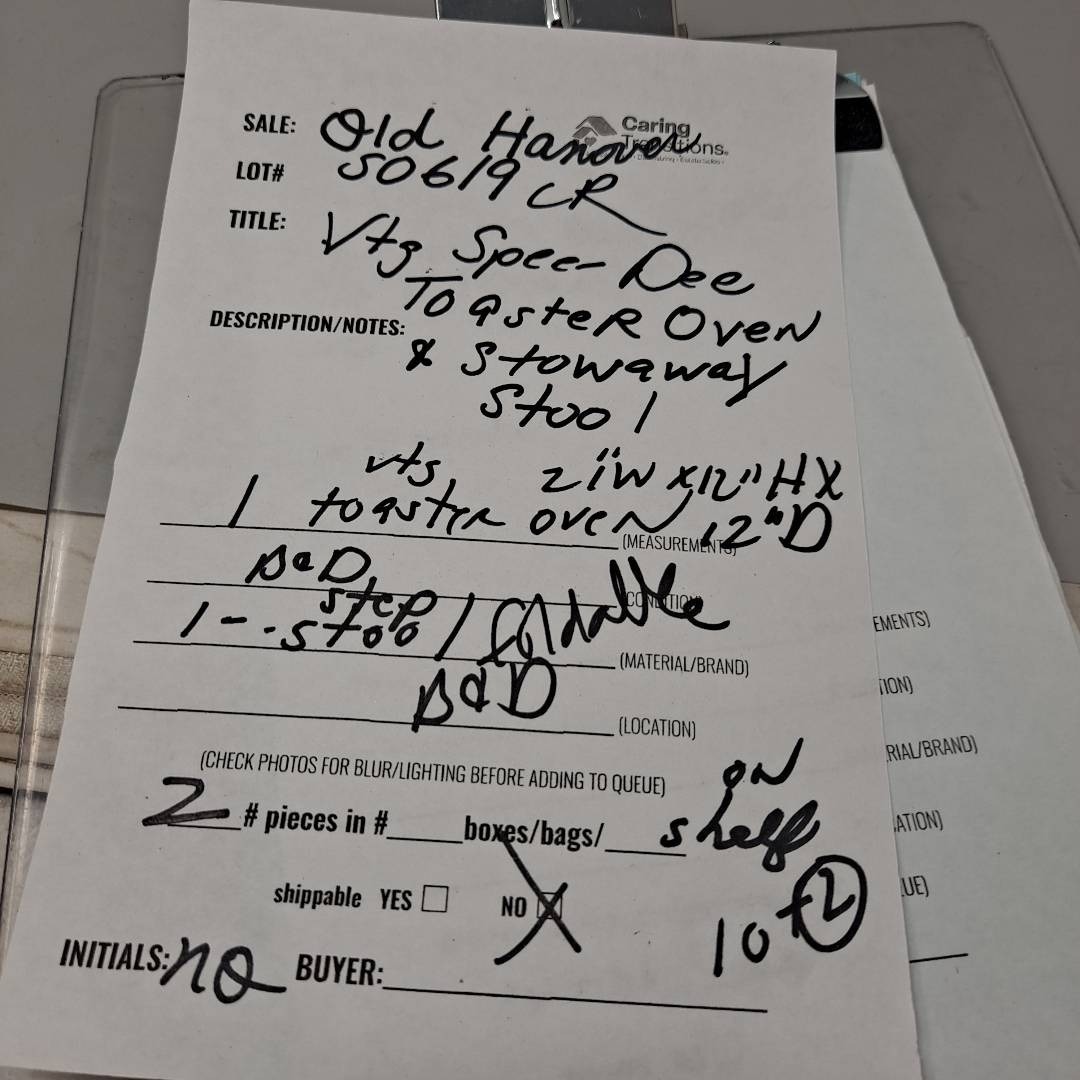 SALE: Old Hanover
Caring Transitions.
LOT# S0619 CR
TITLE: Vtg Speer Dee
Toaster Oven
DESCRIPTION/NOTES:
& Stowaway
Stool
vtg 21"W x 12" H X
1 toaster oven 12"D
(MEASUREMENTS)
(CONDITION)
step
1 - stool foldable
(MATERIAL/BRAND)
(LOCATION)
(CHECK PHOTOS FOR BLUR/LIGHTING BEFORE ADDING TO QUEUE)
on
2 # pieces in # boxes/bags/ shelf
shippable YES NO X
10 + 2
INITIALS: BUYER:
EMENTS)
TION)
RIAL/BRAND)
ATION)
UE)